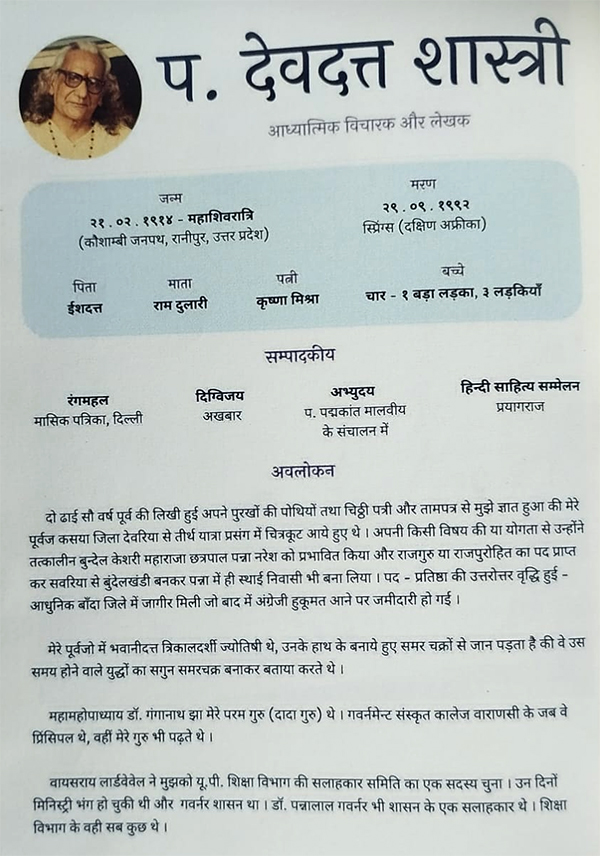 प. देवदत्त शास्त्री
आध्यात्मिक विचारक और लेखक
जन्म
२१ . ०२ . १९१४ - महाशिवरात्रि
(कौशाम्बी जनपथ, रानीपुर, उत्तर प्रदेश)
मरण
२९ . ०९ . १९९२
स्प्रिंग्स (दक्षिण अफ्रीका)
पिता
ईशदत्त
माता
राम दुलारी
पत्नी
कृष्णा मिश्रा
बच्चे
चार - १ बड़ा लड़का, ३ लड़कियाँ
सम्पादकीय
रंगमहल
मासिक पत्रिका, दिल्ली
दिग्विजय
अखबार
अभ्युदय
प. पद्मकांत मालवीय
के संचालन में
हिन्दी साहित्य सम्मेलन
प्रयागराज
अवलोकन
दो ढाई सौ वर्ष पूर्व की लिखी हुई अपने पुरखों की पोथियों तथा चिठ्ठी पत्री और तामपत्र से मुझे ज्ञात हुआ की मेरे
पूर्वज कसया जिला देवरिया से तीर्थ यात्रा प्रसंग में चित्रकूट आये हुए थे । अपनी किसी विषय की या योगता से उन्होंने
तत्कालीन बुन्देल केशरी महाराजा छत्रपाल पन्ना नरेश को प्रभावित किया और राजगुरु या राजपुरोहित का पद प्राप्त
कर सवरिया से बुंदेलखंडी बनकर पन्ना में ही स्थाई निवासी भी बना लिया । पद - प्रतिष्ठा की उत्तरोत्तर वृद्धि हुई -
आधुनिक बाँदा जिले में जागीर मिली जो बाद में अंग्रेजी हुकूमत आने पर जमीदारी हो गई ।
मेरे पूर्वजो में भवानीदत्त त्रिकालदर्शी ज्योतिषी थे, उनके हाथ के बनाये हुए समर चक्रों से जान पड़ता है की वे उस
समय होने वाले युद्धों का सगुन समरचक्र बनाकर बताया करते थे ।
महामहोपाध्याय डॉ. गंगानाथ झा मेरे परम गुरु (दादा गुरु) थे । गवर्नमेन्ट संस्कृत कालेज वाराणसी के जब वे
प्रिंसिपल थे, वहीं मेरे गुरु भी पढ़ते थे ।
वायसराय लार्डवेवेल ने मुझको यू.पी. शिक्षा विभाग की सलाहकार समिति का एक सदस्य चुना । उन दिनों
मिनिस्ट्री भंग हो चुकी थी और गवर्नर शासन था । डॉ. पन्नालाल गवर्नर भी शासन के एक सलाहकार थे । शिक्षा
विभाग के वही सब कुछ थे ।